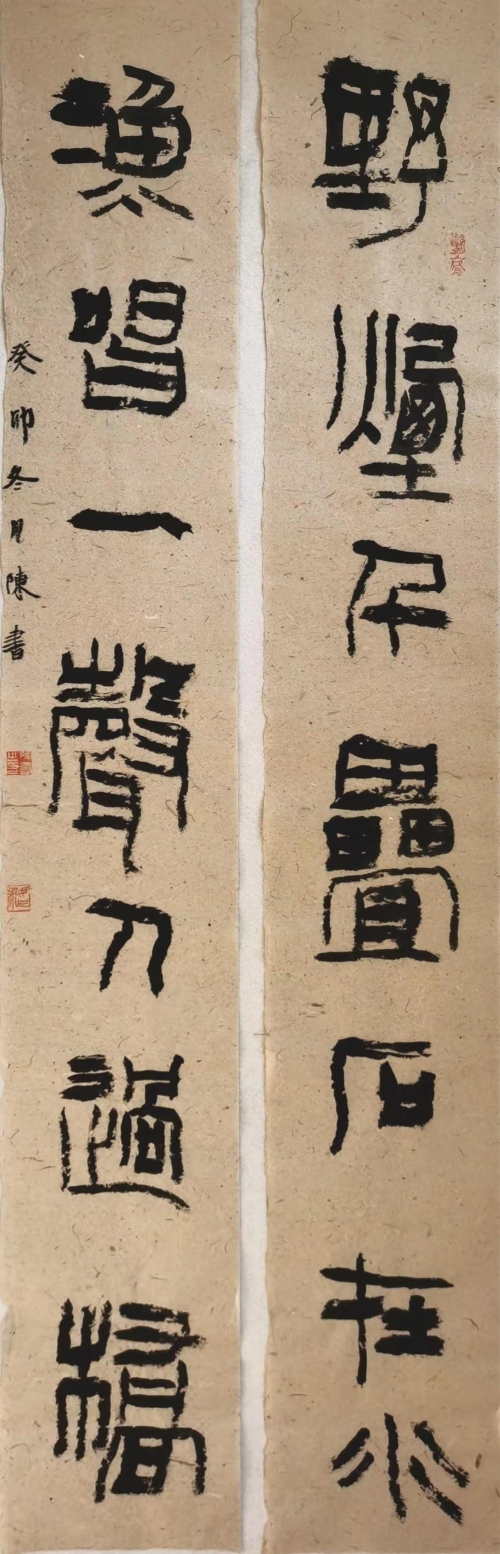 野煙千疊石在水
漁唱一聲人過橋
癸卯冬月陳書